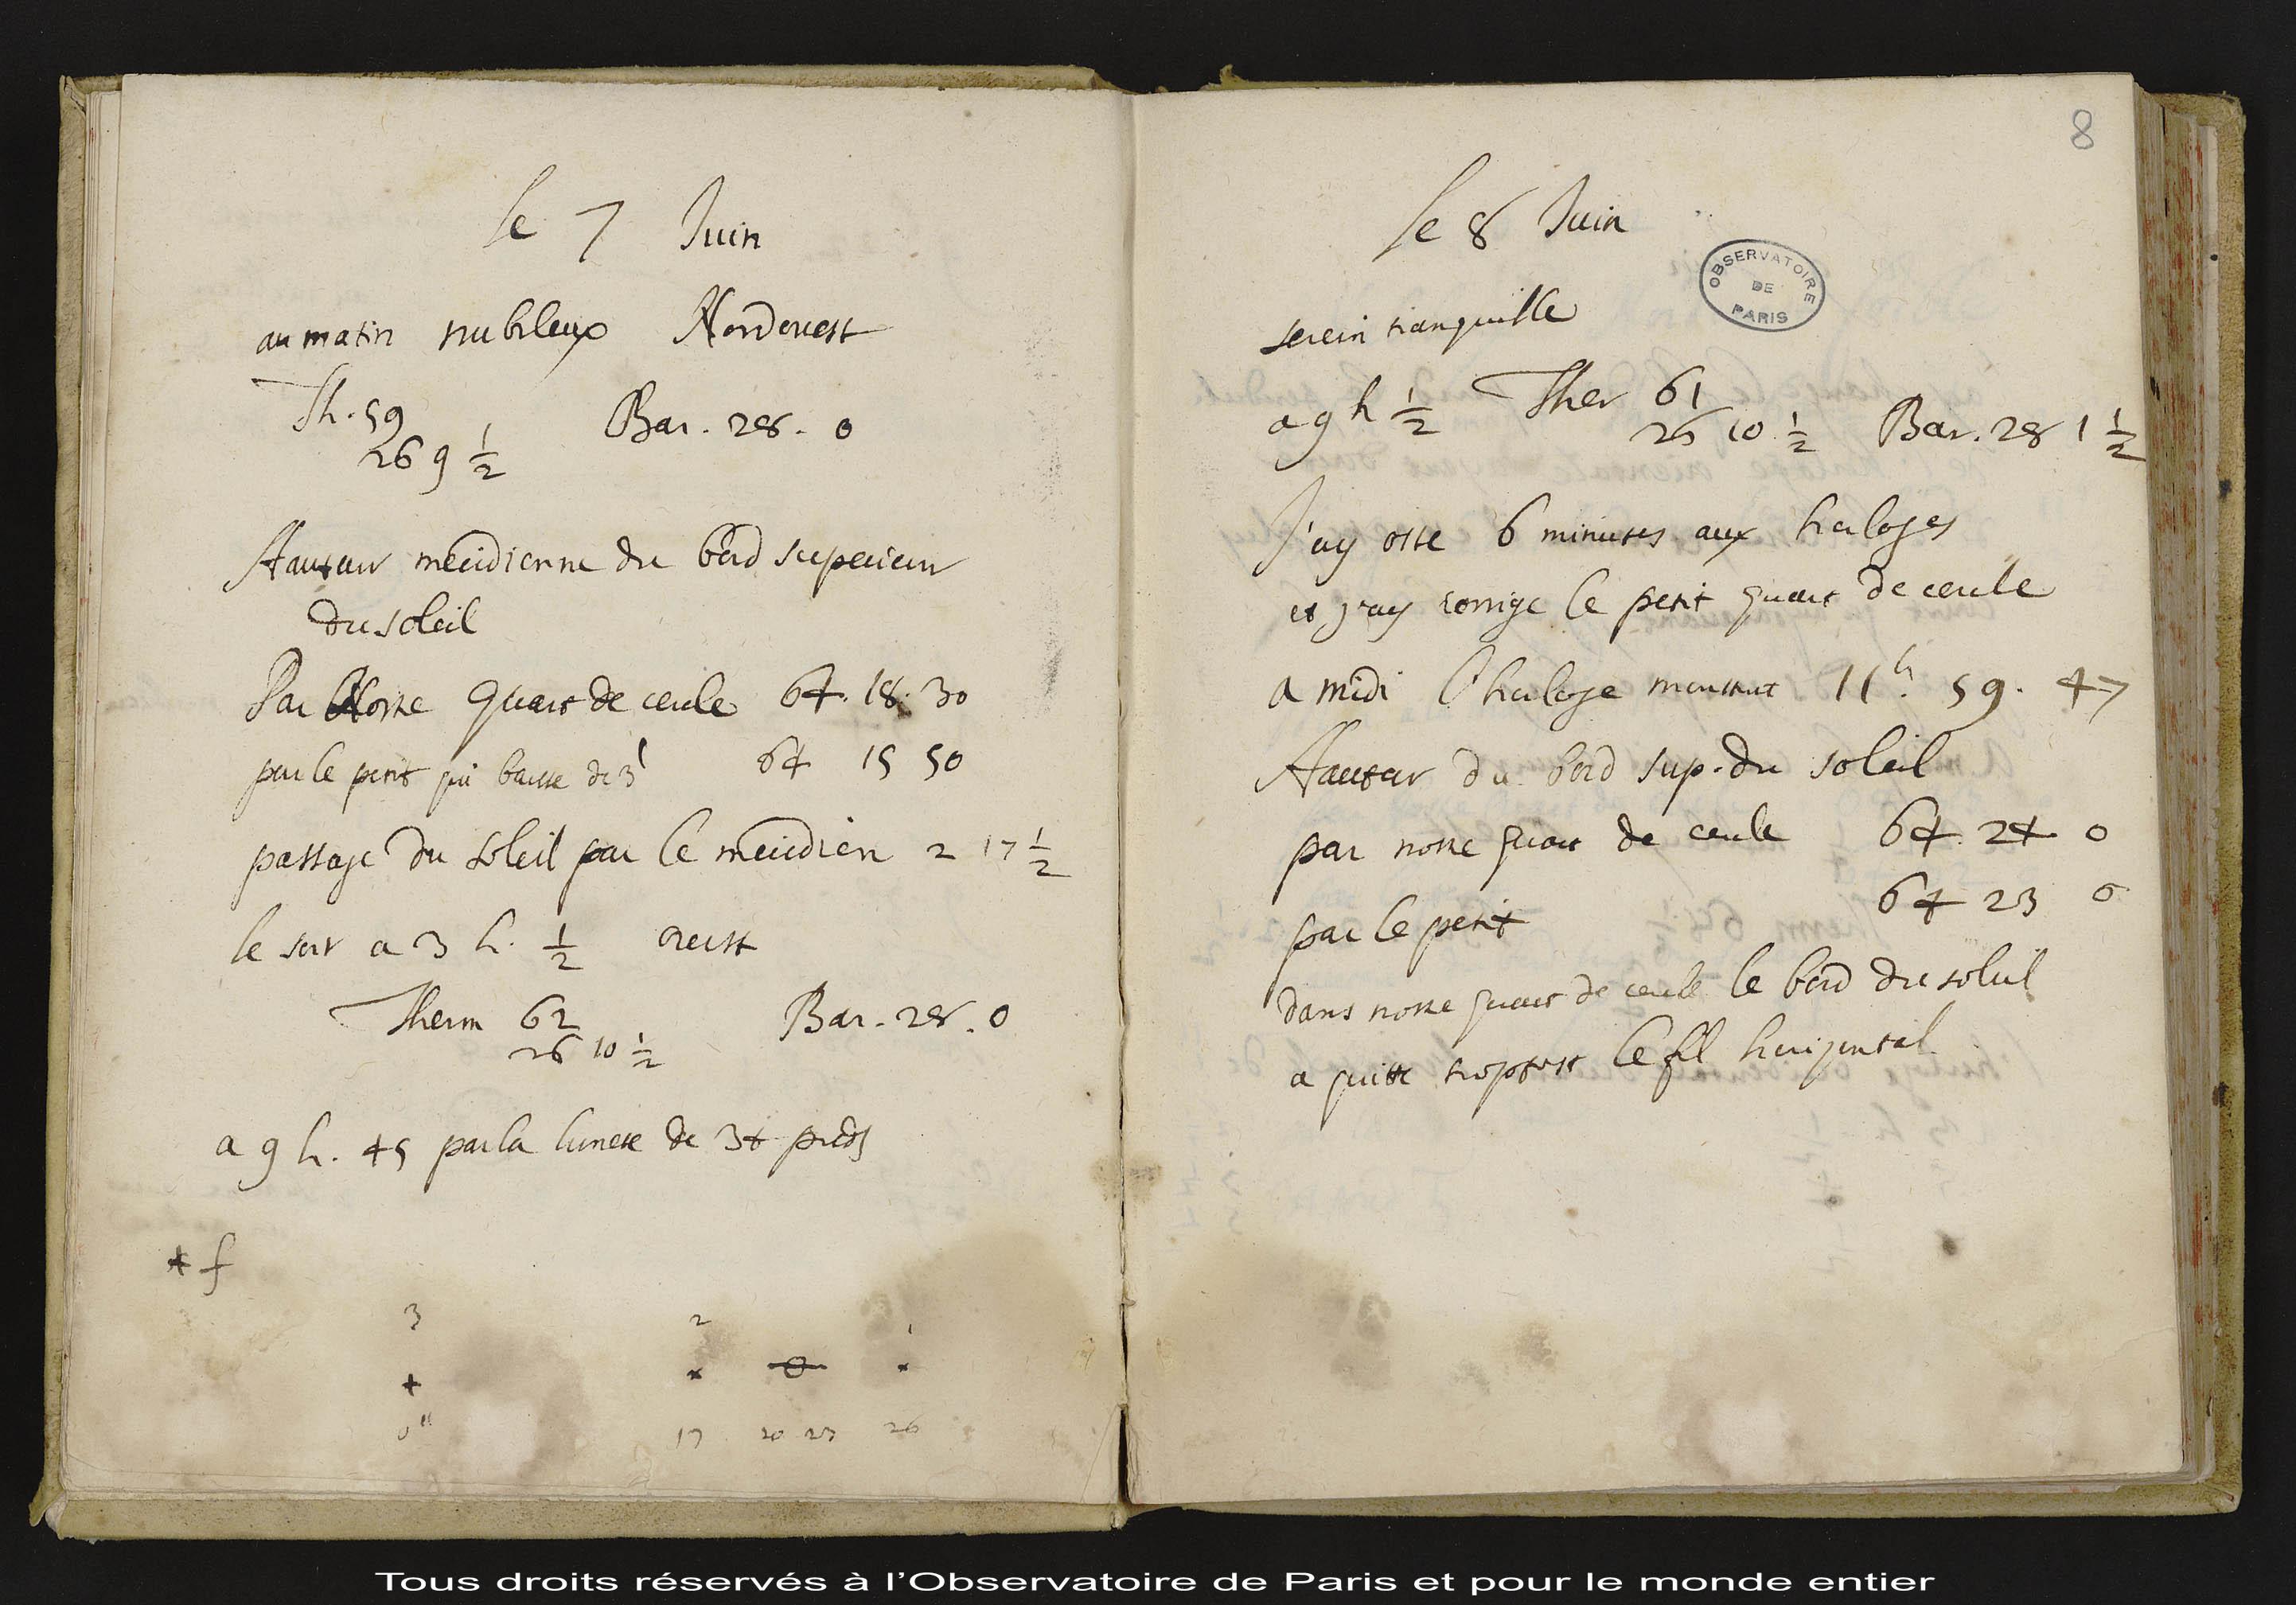 le 7 Juin
au matin nubileux Nordouest
Th. 59 Bar. 28. 0
26 9 1/2
Hauteur meridienne du bord superieur
du soleil
Par Nostre Quart de cercle 64. 18. 30
par le petit qui baisse de 3' 64 15 50
passage du soleil par le meridien 2 17 1/2
le soir a 3 h. 1/2 ouest
Therm 62 Bar. 28. 0
26 10 1/2
a 9 h. 45 par la lunete de 34 pieds
* f
3 2 1
0" 17 20 23 26
8
le 8 Juin
OBSERVATOIRE DE PARIS
serein tranquille
a 9 h 1/2 Ther 61
26 10 1/2 Bar. 28 1 1/2
J'ay osté 6 minutes aux horloges
et j'ay corrigé le petit quart de cercle
a midi l'horloge monstroit 11h. 59. 47
Hauteur du bord sup. du soleil
par nostre quart de cercle 64. 24 0
par le petit 64 23 0
dans nostre quart de cercle le bord du soleil
a quitté troptost le fil horizontal
Tous droits réservés à l'Observatoire de Paris et pour le monde entier